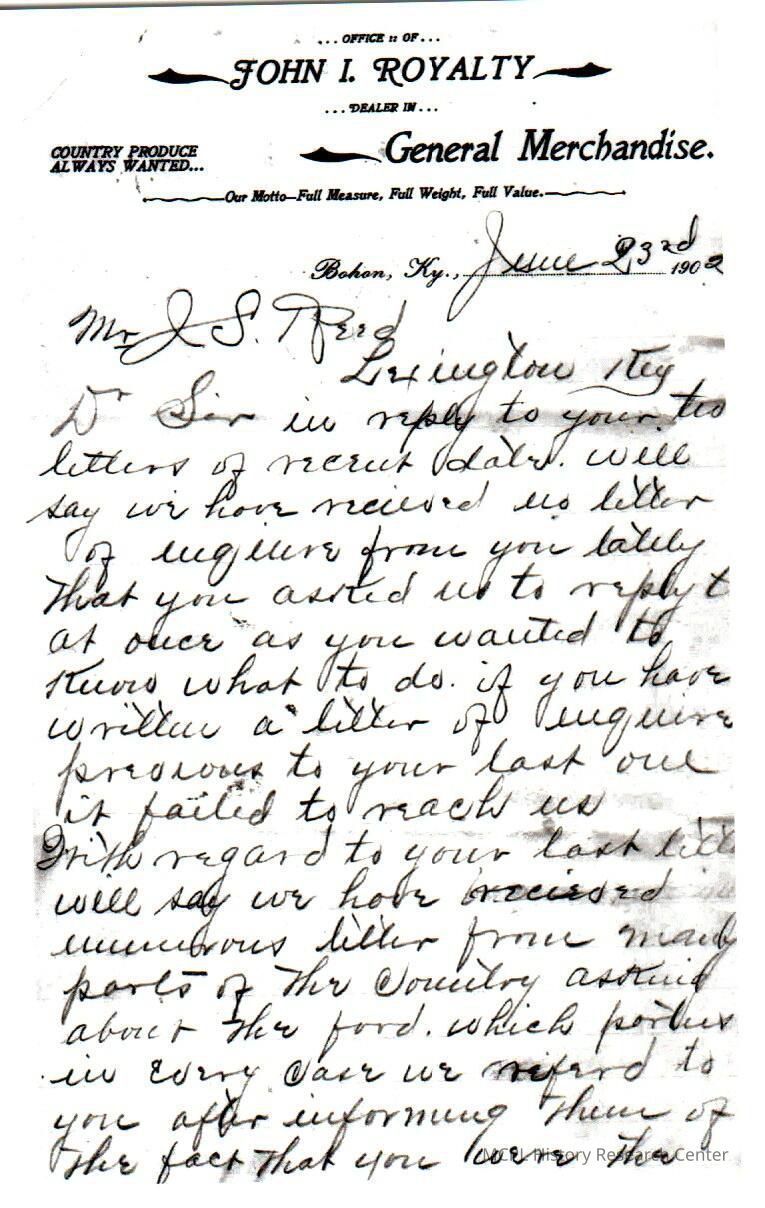 ... OFFICE :: OF ...
JOHN I. ROYALTY
... DEALER IN ...
COUNTRY PRODUCE
ALWAYS WANTED...
General Merchandise.
Our Motto—Full Measure, Full Weight, Full Value.
Bohon, Ky., June 23rd 1902
Mr J S. Reed
Lexington Ky
Dr Sir in reply to your two
letters of recent date. will
say we have recieved no letter
of enquire from you lately
that you asked us to reply t
at once as you wanted to
know what to do. if you have
written a letter of enquire
previous to your last one
it failed to reach us
With regard to your last lett
will say we have recieved
numerous letter from many
parts of the Country asking
about the ford. which parties
in every case we referd to
you after informing them of
the fact that you were the
MCPL History Research Center